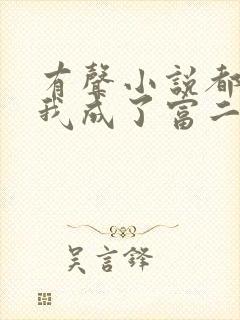 有聲小説都
我成了富二
吴言鋒